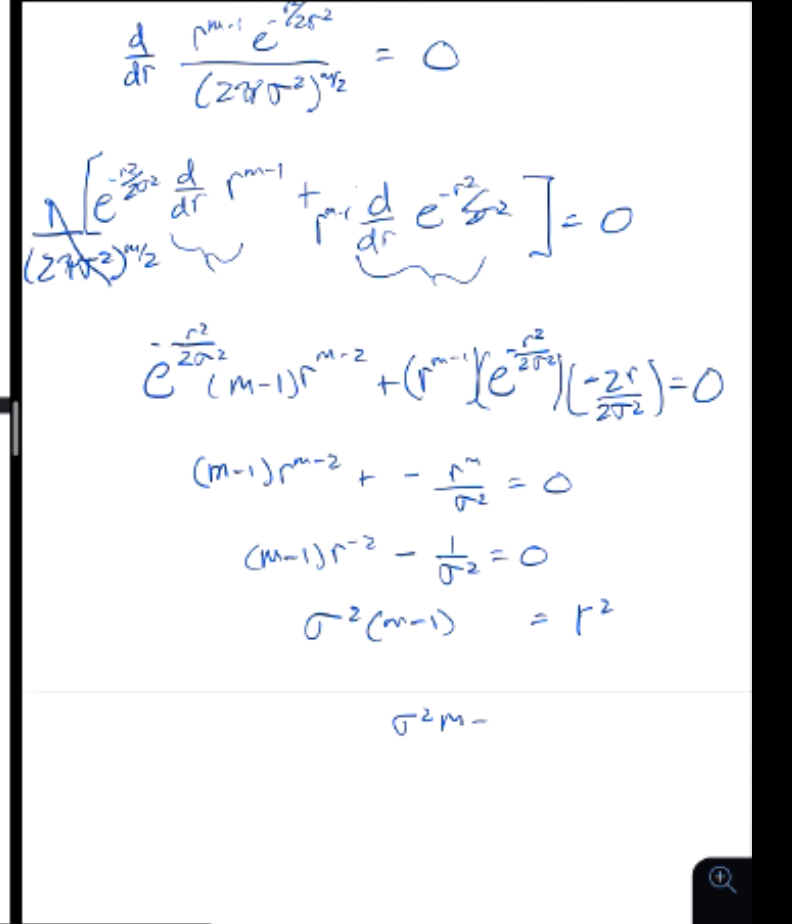 d/dr r^{m-1} e^{-r²/2σ²} / (2πσ²)^{m/2} = 0
1/(2πσ²)^{m/2} [e^{-r²/2σ²} d/dr r^{m-1} + r^{m-1} d/dr e^{-r²/2σ²}] = 0
e^{-r²/2σ²} (m-1)r^{m-2} + (r^{m-1})(e^{-r²/2σ²})(-2r/2σ²) = 0
(m-1)r^{m-2} + - r^m/σ² = 0
(m-1)r^{-2} - 1/σ² = 0
σ²(m-1) = r²
σ²m -